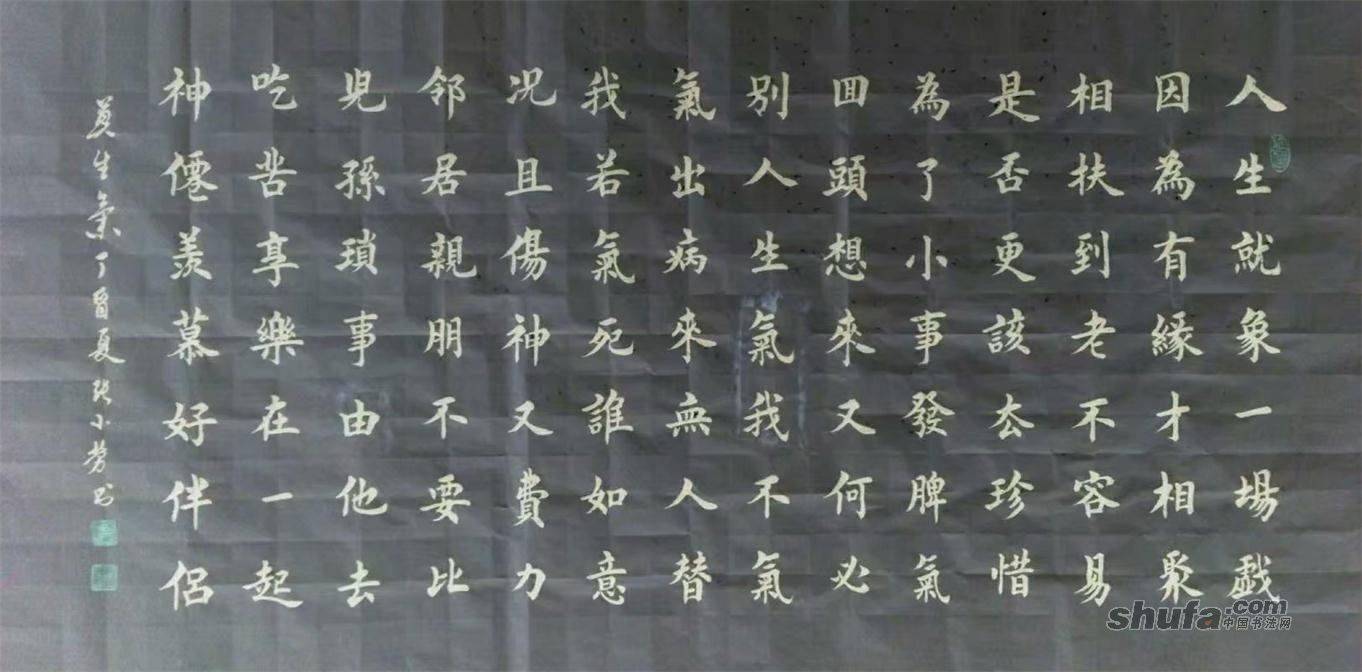 人生就象一場戲
因為有緣才相聚
相扶到老不容易
是否更該去珍惜
為了小事發脾氣
回頭想來又何必
別人生氣我不氣
氣出病來無人替
我若氣死誰如意
況且傷神又費力
邻居親朋不要比
兒孫瑣事由他去
吃苦享樂在一起
神僊羨慕好伴侶
莫生氣丁酉夏張小芳书
shufa.com
中国书法网